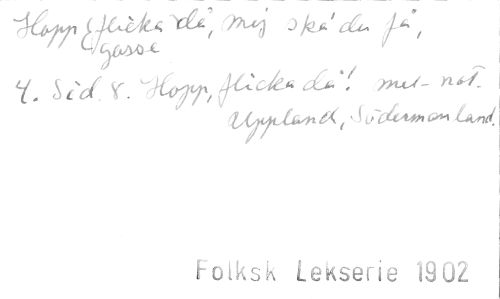 Hopp (flicka då, mig ska' du få,
gosse
4. Sid. 8. Hopp, flicka då! mel-not.
Uppland, Södermanland.
Folksk Lekserie 1902